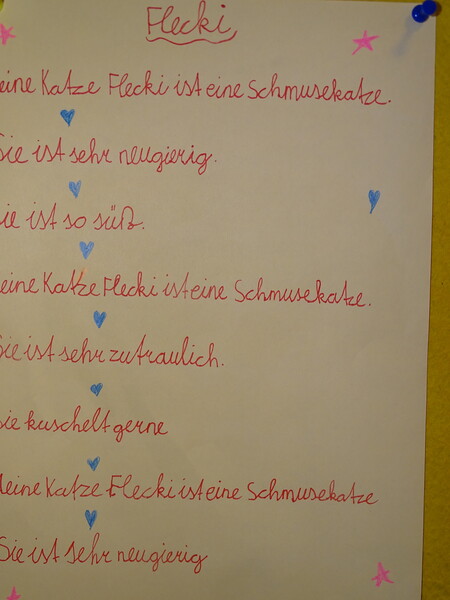 Flecki
eine Katze Flecki ist eine Schmusekatze.
Sie ist sehr neugierig.
ie ist so süß.
eine Katze Flecki ist eine Schmusekatze.
Sie ist sehr zutraulich.
Sie kuschelt gerne
Meine Katze Flecki ist eine Schmusekatze
Sie ist sehr neugierig